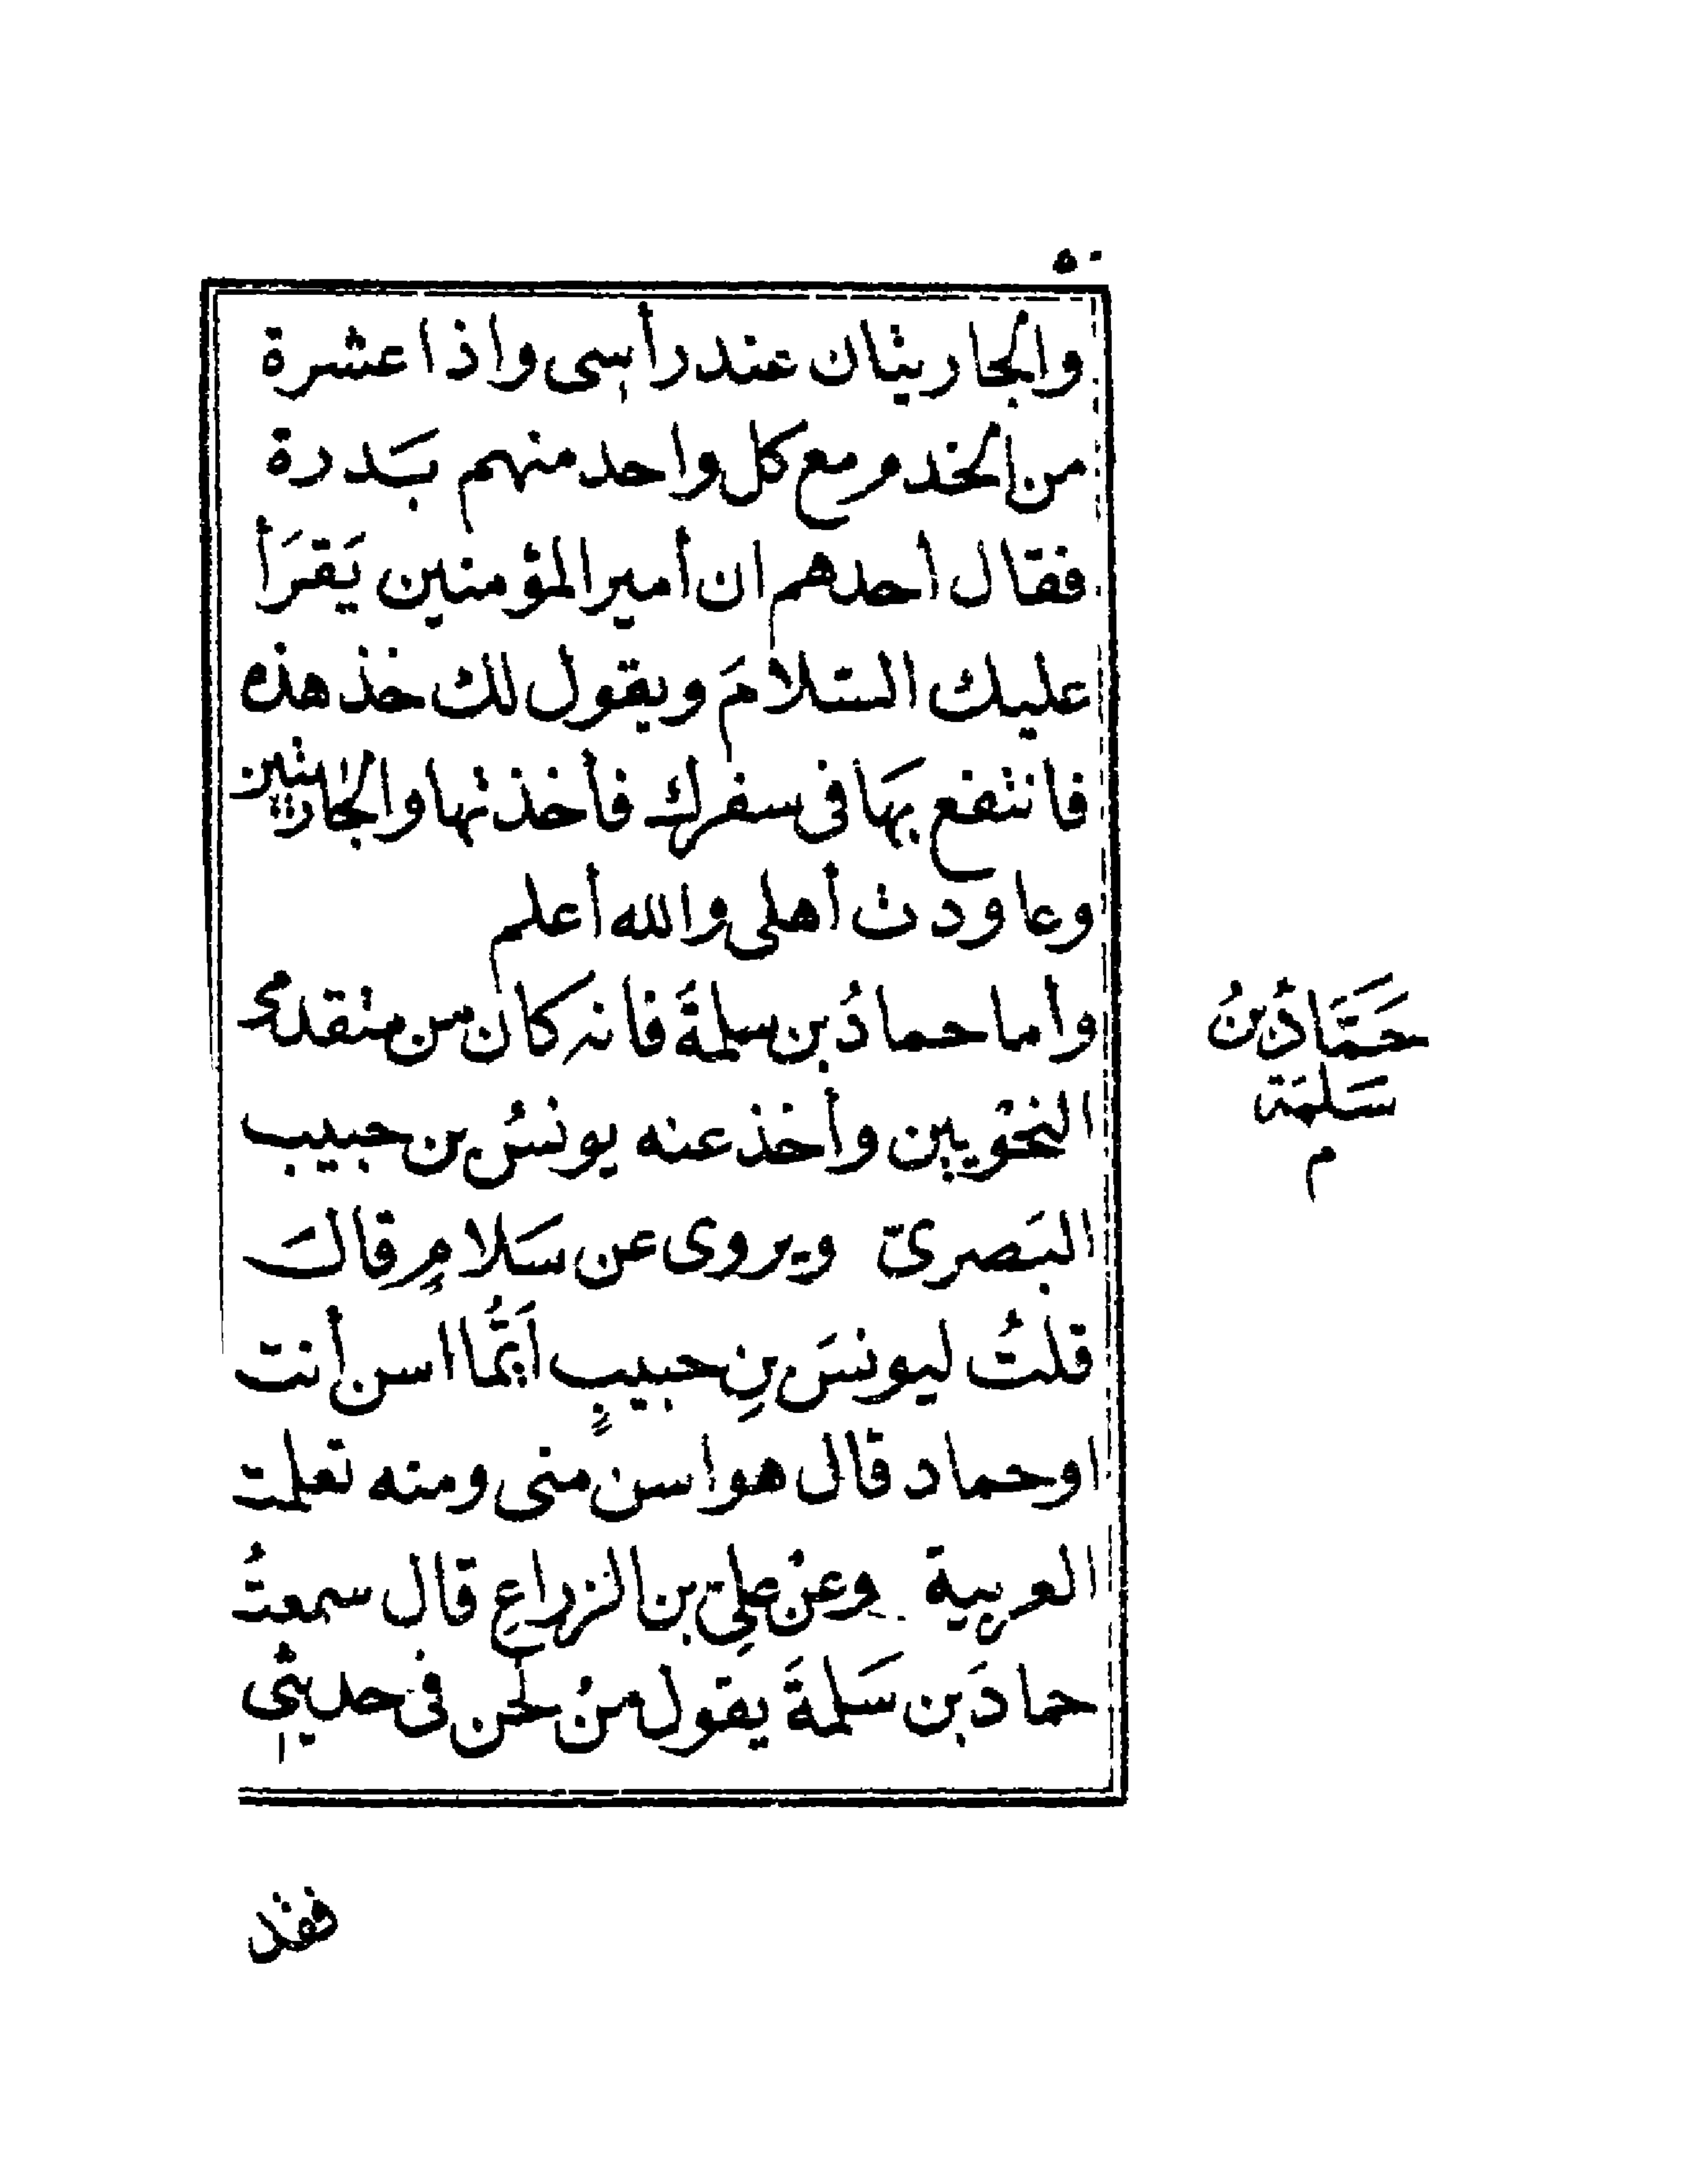 ٥٠
والجاريتان عند رأسى واذا عشرة
من الخدم ومع كل واحد منهم بَدرة
فقال أحدهم ان أمير المؤمنين يَقرَأ
عليك السّلامَ ويقول لك خذ هذه
فانتفع بهَا فى سفرك فأخذتها والجاريتين
وعاودت أهلى والله أعلم
وأما حمادُ بن سلمةَ فانه كان من متقدمى
النحْويين وأخذ عنه يونسُ بن حبيب
البَصرىّ ويروى عن سَلامٍ قالَ
قلتُ ليونسَ بنِ حبيبٍ أَيُّما اسن أنت
اوحماد قال هو اسن منى ومنه تعلمت
العربية وعنْ علىّ بن الزراع قال سمعتُ
حمادَ بن سَلمةَ يقول منْ لحن فى حديثى
حَمَّادُ بنُ
سَلَمَة
م
فقد